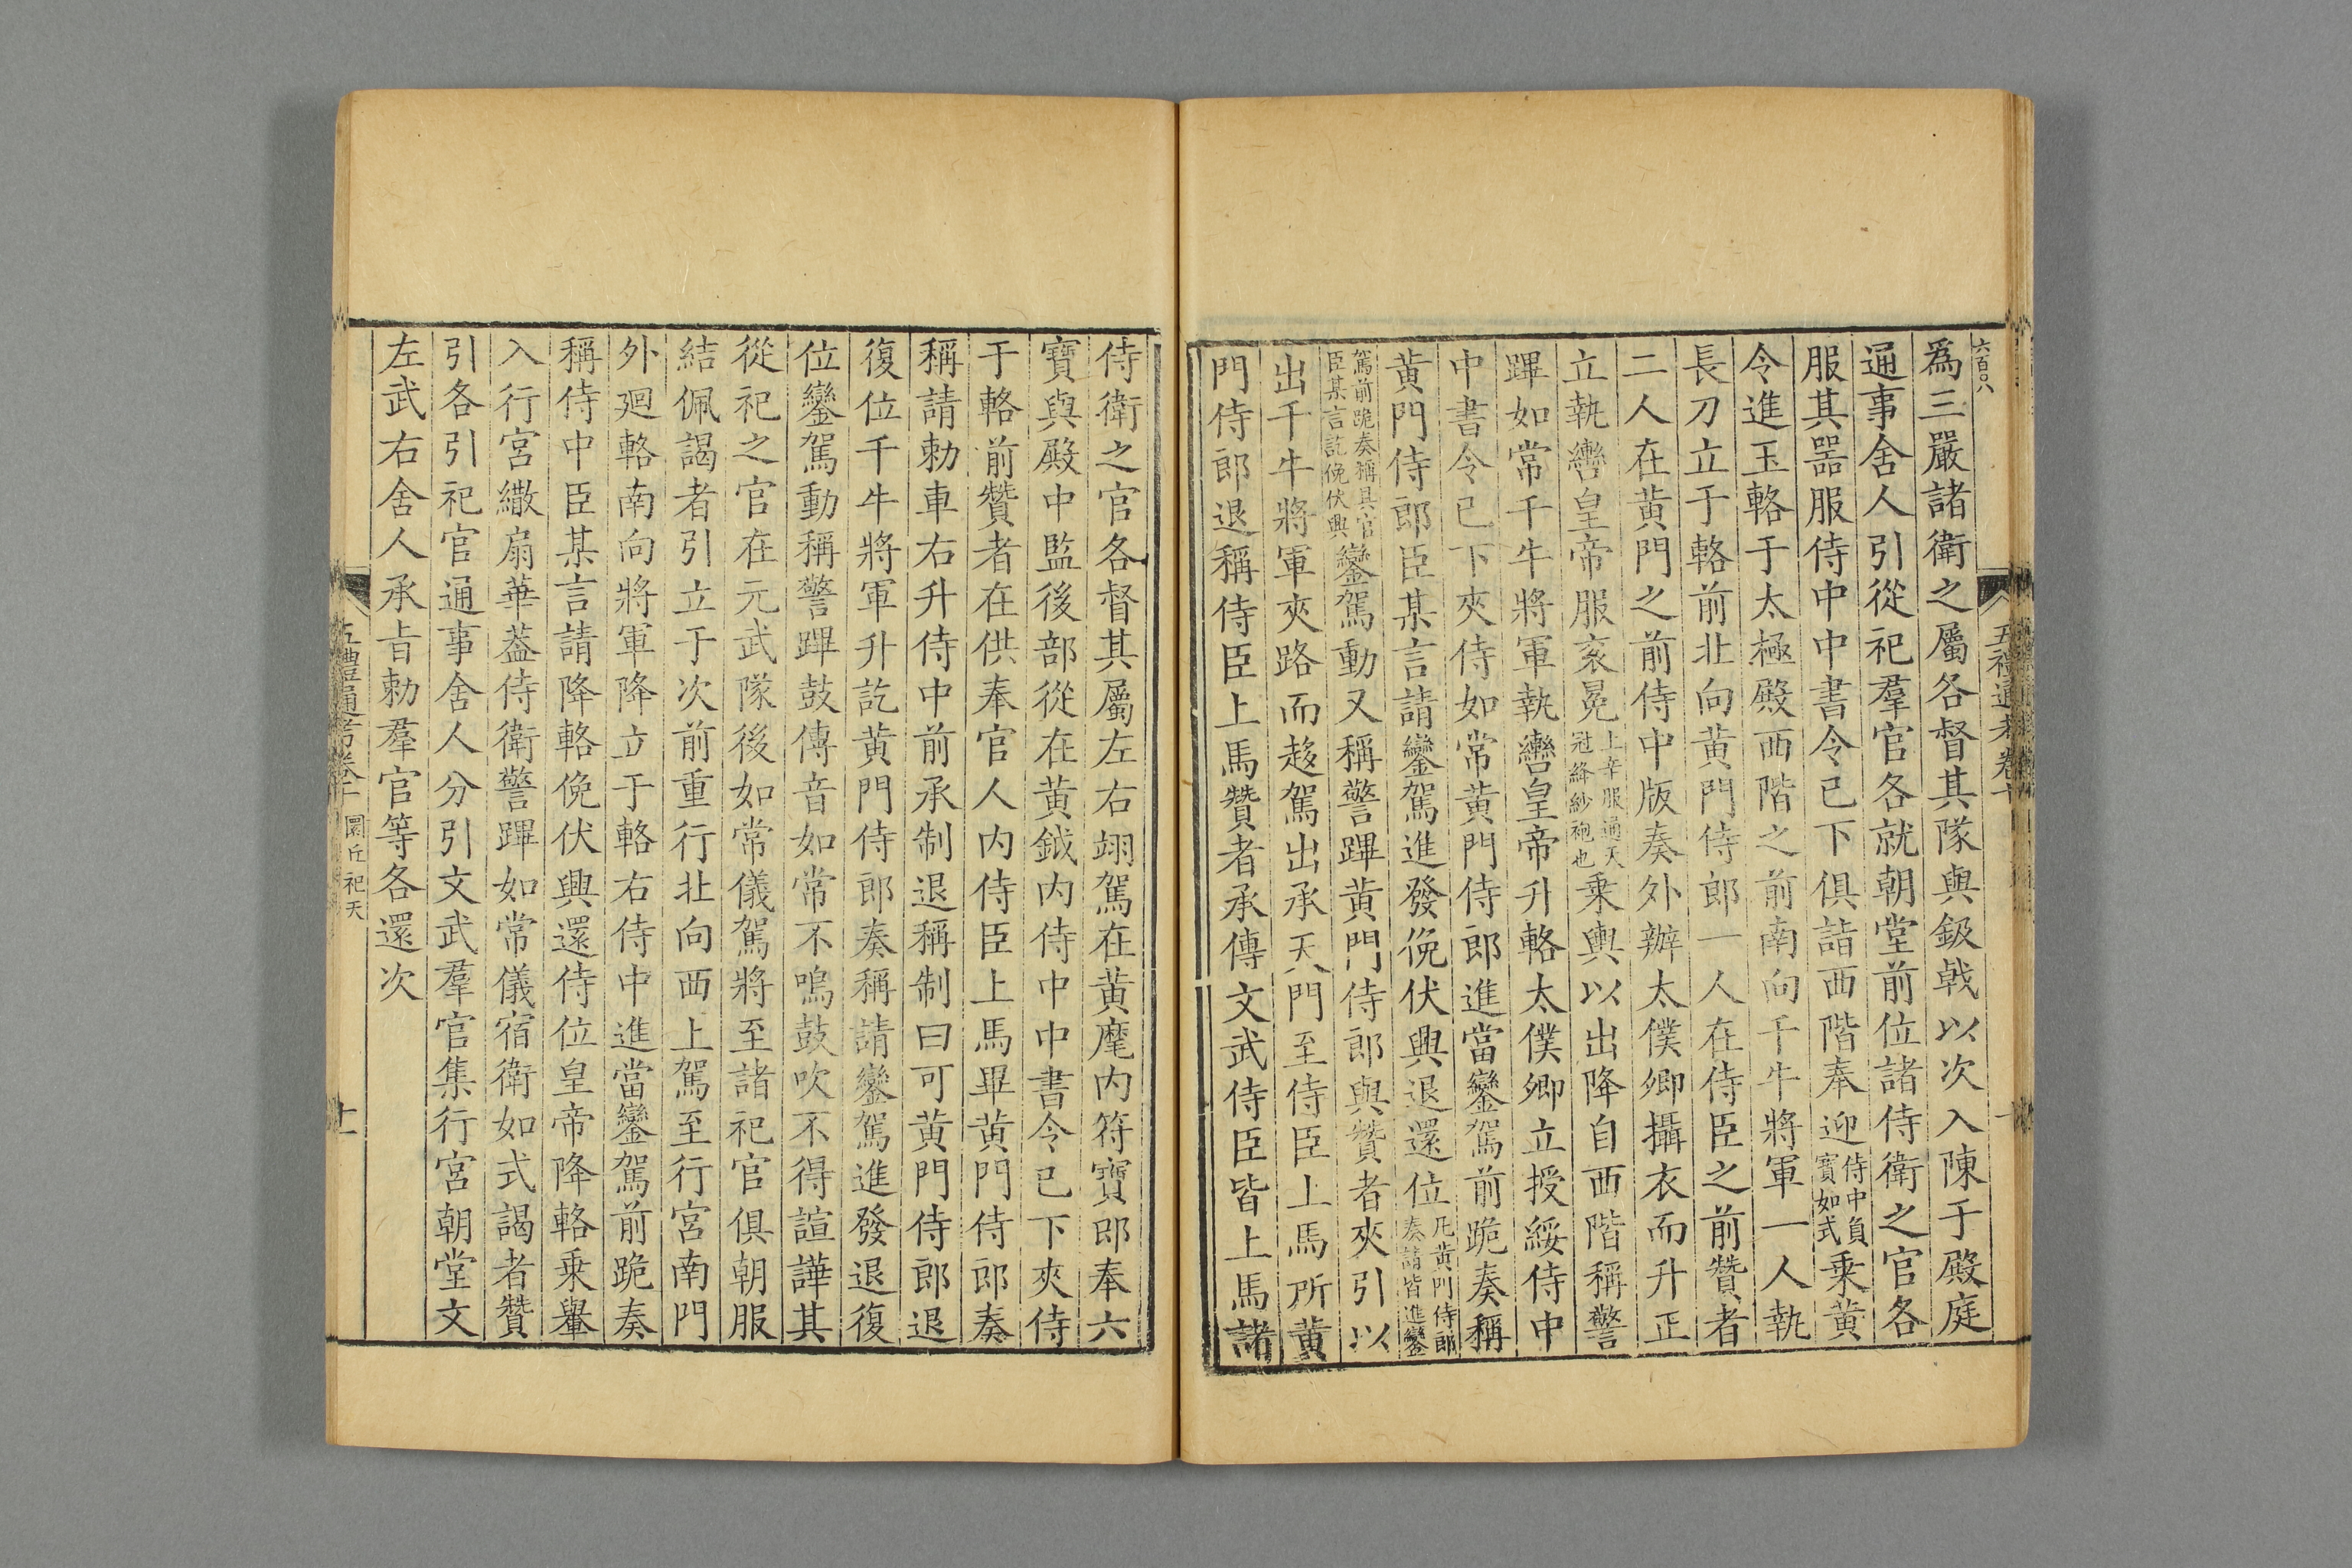 六百〇八
五禮通考卷十
爲三嚴諸衛之屬各督其隊與鈒戟以次入陳于殿庭
通事舍人引從祀羣官各就朝堂前位諸侍衛之官各
服其器服侍中中書令已下俱詣西階奉迎侍中負寳如式乘黃
令進玉輅于太極殿西階之前南向千牛將軍一人執
長刀立于輅前北向黃門侍郎一人在侍臣之前贊者
二人在黃門之前侍中版奏外辦太僕卿攝衣而升正
立執轡皇帝服衮冕上辛服通天冠絳紗袍也乘輿以出降自西階稱警
蹕如常千牛將軍執轡皇帝升輅太僕卿立授綏侍中
中書令已下夾侍如常黃門侍郎進當鑾駕前跪奏稱
黃門侍郎臣某言請鑾駕進發俛伏興退還位凡黃門侍郎奏請皆進鑾
駕前跪奏稱具官臣某言訖俛伏興鑾駕動又稱警蹕黃門侍郎與贊者夾引以
出千牛將軍夾路而趍駕出承天門至侍臣上馬所黃
門侍郎退稱侍臣上馬贊者承傳文武侍臣皆上馬諸
侍衛之官各督其屬左右翊駕在黃麾內符寶郎奉六
寶與殿中監後部從在黃鉞內侍中中書令已下夾侍
于輅前贊者在供奉官人內侍臣上馬畢黃門侍郎奏
稱請勅車右升侍中前承制退稱制曰可黃門侍郎退
復位千牛將軍升訖黃門侍郎奏稱請鑾駕進發退復
位鑾駕動稱警蹕鼓傳音如常不鳴鼓吹不得諠譁其
從祀之官在元武隊後如常儀駕將至諸祀官俱朝服
結佩謁者引立于次前重行北向西上駕至行宮南門
外廻輅南向將軍降立于輅右侍中進當鑾駕前跪奏
稱侍中臣某言請降輅俛伏興還侍位皇帝降輅乘轝
入行宮繖扇華葢侍衛警蹕如常儀宿衛如式謁者贊
引各引祀官通事舍人分引文武羣官集行宮朝堂文
左武右舍人承旨勅羣官等各還次
五禮通考卷十 圜丘祀天
十